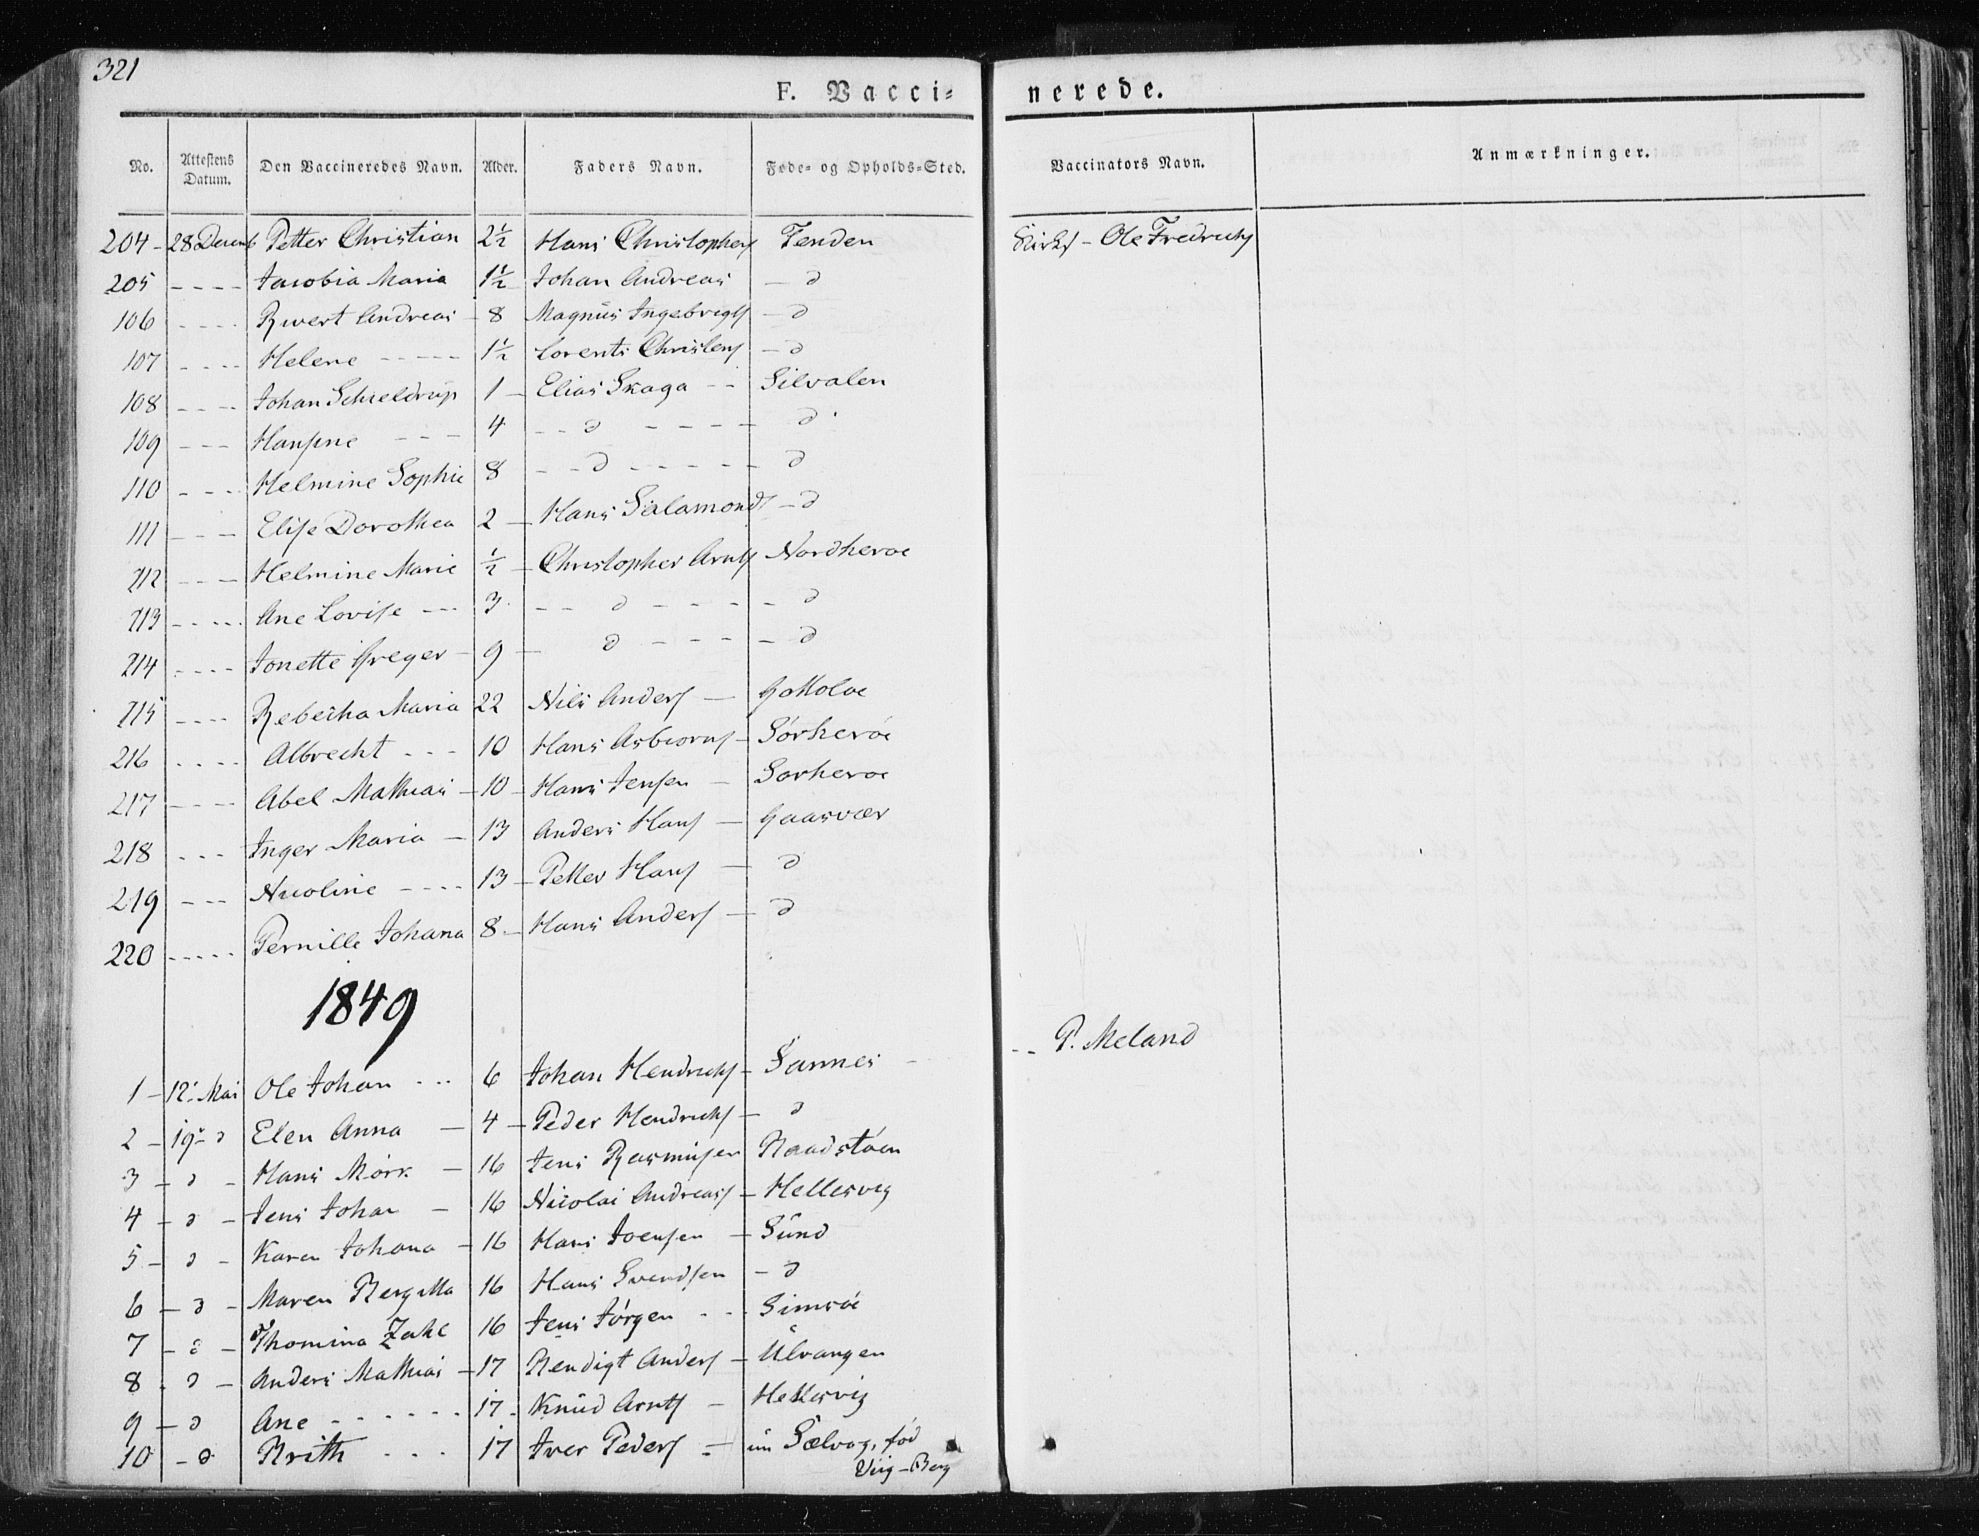 321
F. Vacci=
nerede.
No. Attestens Datum. Den Vaccineredes Navn. Alder. Faders Navn. Føde- og Opholds-Sted. Vaccinators Navn. Anmærkninger.
204 - 28 Decemb Petter Christian 2½ Hans Christophers Tenden Kirks - Ole Fredrichs
205 - - - - Jacobia Maria 1½ Johan Andreas - d
106 - - - - Andreas - 8 Magnus Ingebrigts - d
107 - - - - Helene - - - - - 1½ Lorents Christens - d
108 - - - - Johan Schieldrup 1 - Elias Skaga - - Silvalen
109 - - - Hansine - - - 4 - - d - - - - - d
110 - - - - Helmine Sophie 8 - - d - - - - - d
111 - - - Elise Dorothea 2 - Hans Salamonds - d
212 - - - Helmine Marie ½ - Christopher Arnts Nordherøe
213 - - - - - Ane Lovise - - - 3 - - d - - - - - d
214 - - - - Jonette Greger - 9 - d - - - - d
215 - - - - Rebecha Maria 22 Nils Anders -
216 - - - - Albrecht - - - 10 Hans Asbiorns - Sørherøe
217 - - - - Abel Mathias - 10 - Hans Jensen - Sørherøe
218 - - - Inger Maria - 13 Anders Hans - Gaasvær
219 - - - Nicoline - - - - 13 - Petter Hans - d
220 - - - - - Pernille Johana 8 - Hans Anders - d
1849
1 - 12' Mai Ole Johan - - - 6 Johan Hendrichs - Sannes - - - P. Meland
2 - 19' - d Elen Anna - 4 - Peder Hendrichs - d
3 - d - Hans Mørk - 16 Jens Rasmusen
4 - d - Jens Johan - 16 Nicolai Andreass - Hellesvig
5 - d - Karen Johana - 16 Hans Joensen - Sund
6 - d - Maren Bergitta 16 Hans Svendsen - d
7 - d - Thomina Zahl 16 Jens Jørgen - - - Simsøe
8 - d - Anders Mathias - 17 Bendigt Anders - Ulvangen
9 - d Ane - - - - - - 17 - Knud Arnts - Hellesvig
10 - d - Brith - - - 17 Iver Peders - Sælvog, fød
Berg